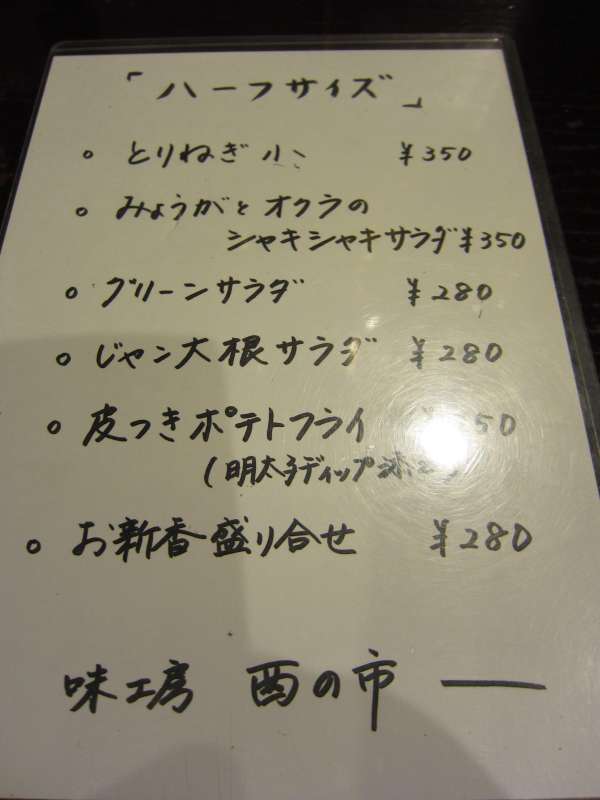 「ハーフサイズ」
。とりねぎ小 ¥350
。みょうがとオクラの
シャキシャキサラダ ¥350
。グリーンサラダ ¥280
。じゃン大根サラダ ¥280
。皮つきポテトフライ
(明太子ディップ
。お新香盛り合せ ¥280
味工房 酉の市 ―